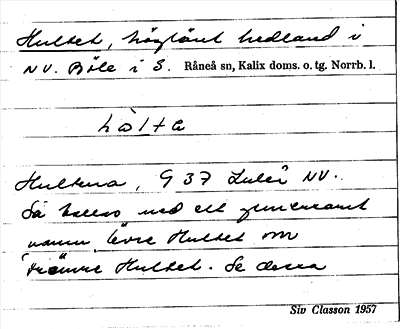 Hultet, höglänt hedland i
NV. Böle i S. Råneå sn, Kalix doms. o. tg. Norrb. l.
Hultena, G 37 Luleå NV.
Så kallas med ett gemensamt
namn övre Hultet om
främre Hultet. Se dessa
Siv Classon 1957